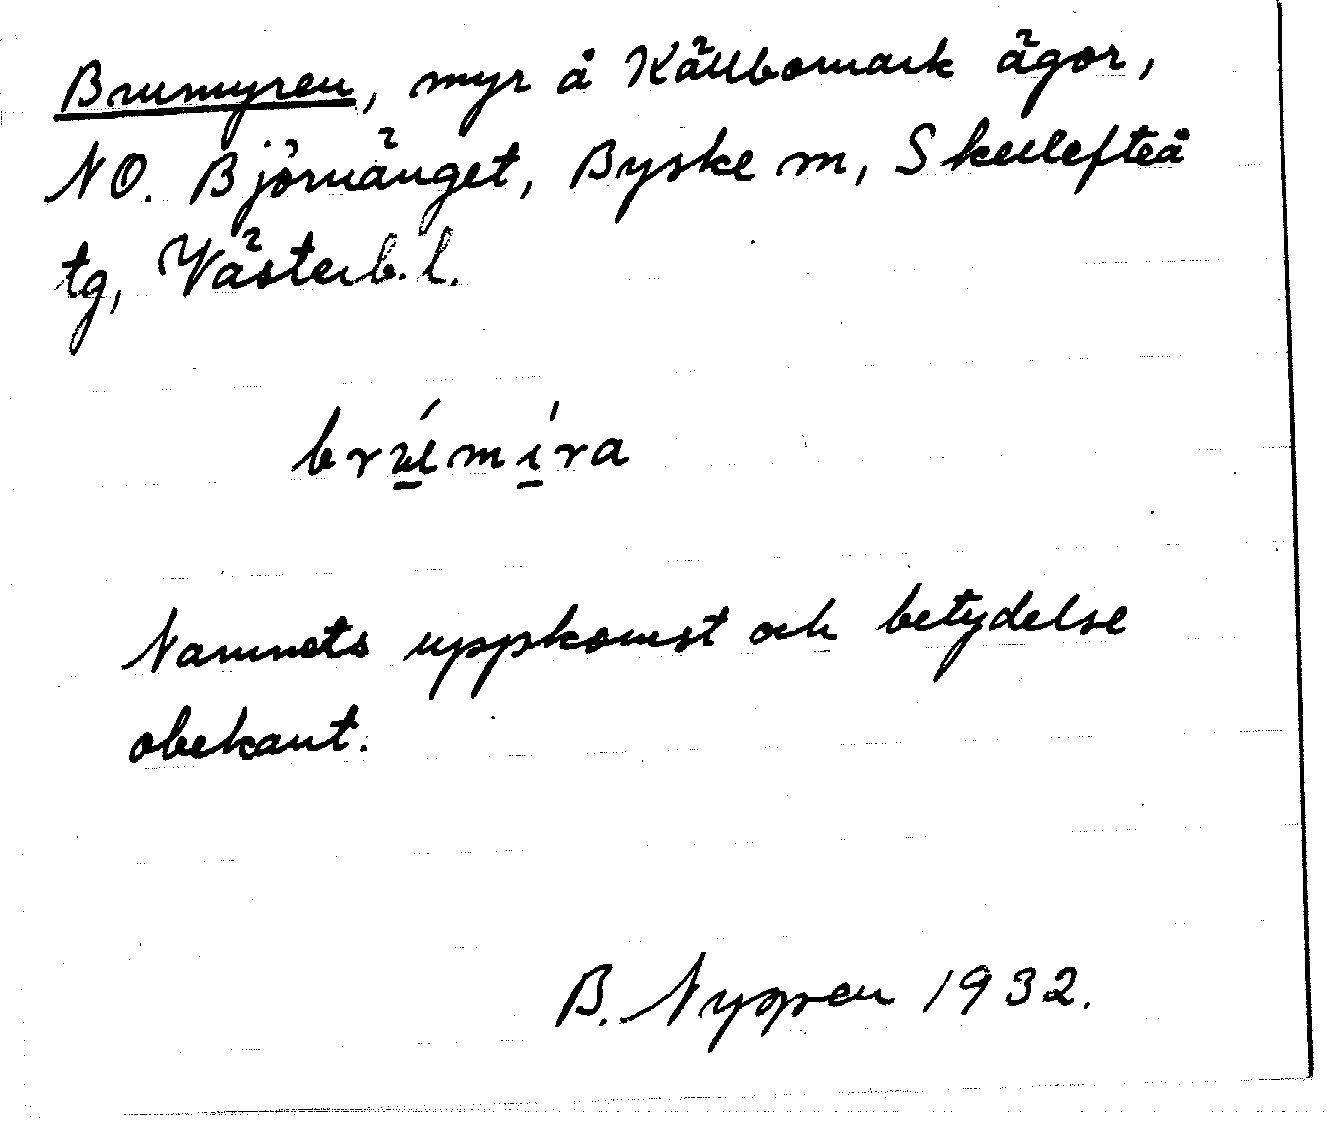 Brumyren, myr å Källbomark ägor,
NO. Björnänget, Byske m, Skellefteå
tg, Västerb. l.
brúmíra
Namnets uppkomst och betydelse
obekant.
B. Nygren 1932.